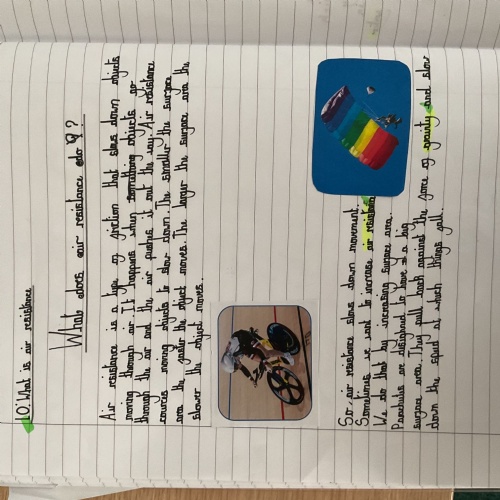 LO. What is air resistance
What does air resistance do?
Air resistance is a type of friction that slows down objects
moving through air It happens when something objects go
through the air and the air pushes it out the way Air resistance
causes moving objects to slow down. The smaller the surface
area the faster the object moves. The larger the surface area the
slower the object moves.
So, air resistance slows down movement.
Sometimes we want to increase air resistance
We do that by increasing surface area.
Parachutes are designed to have a big
surface area. They pull back against the force of gravity and slow
down the speed at which things fall.